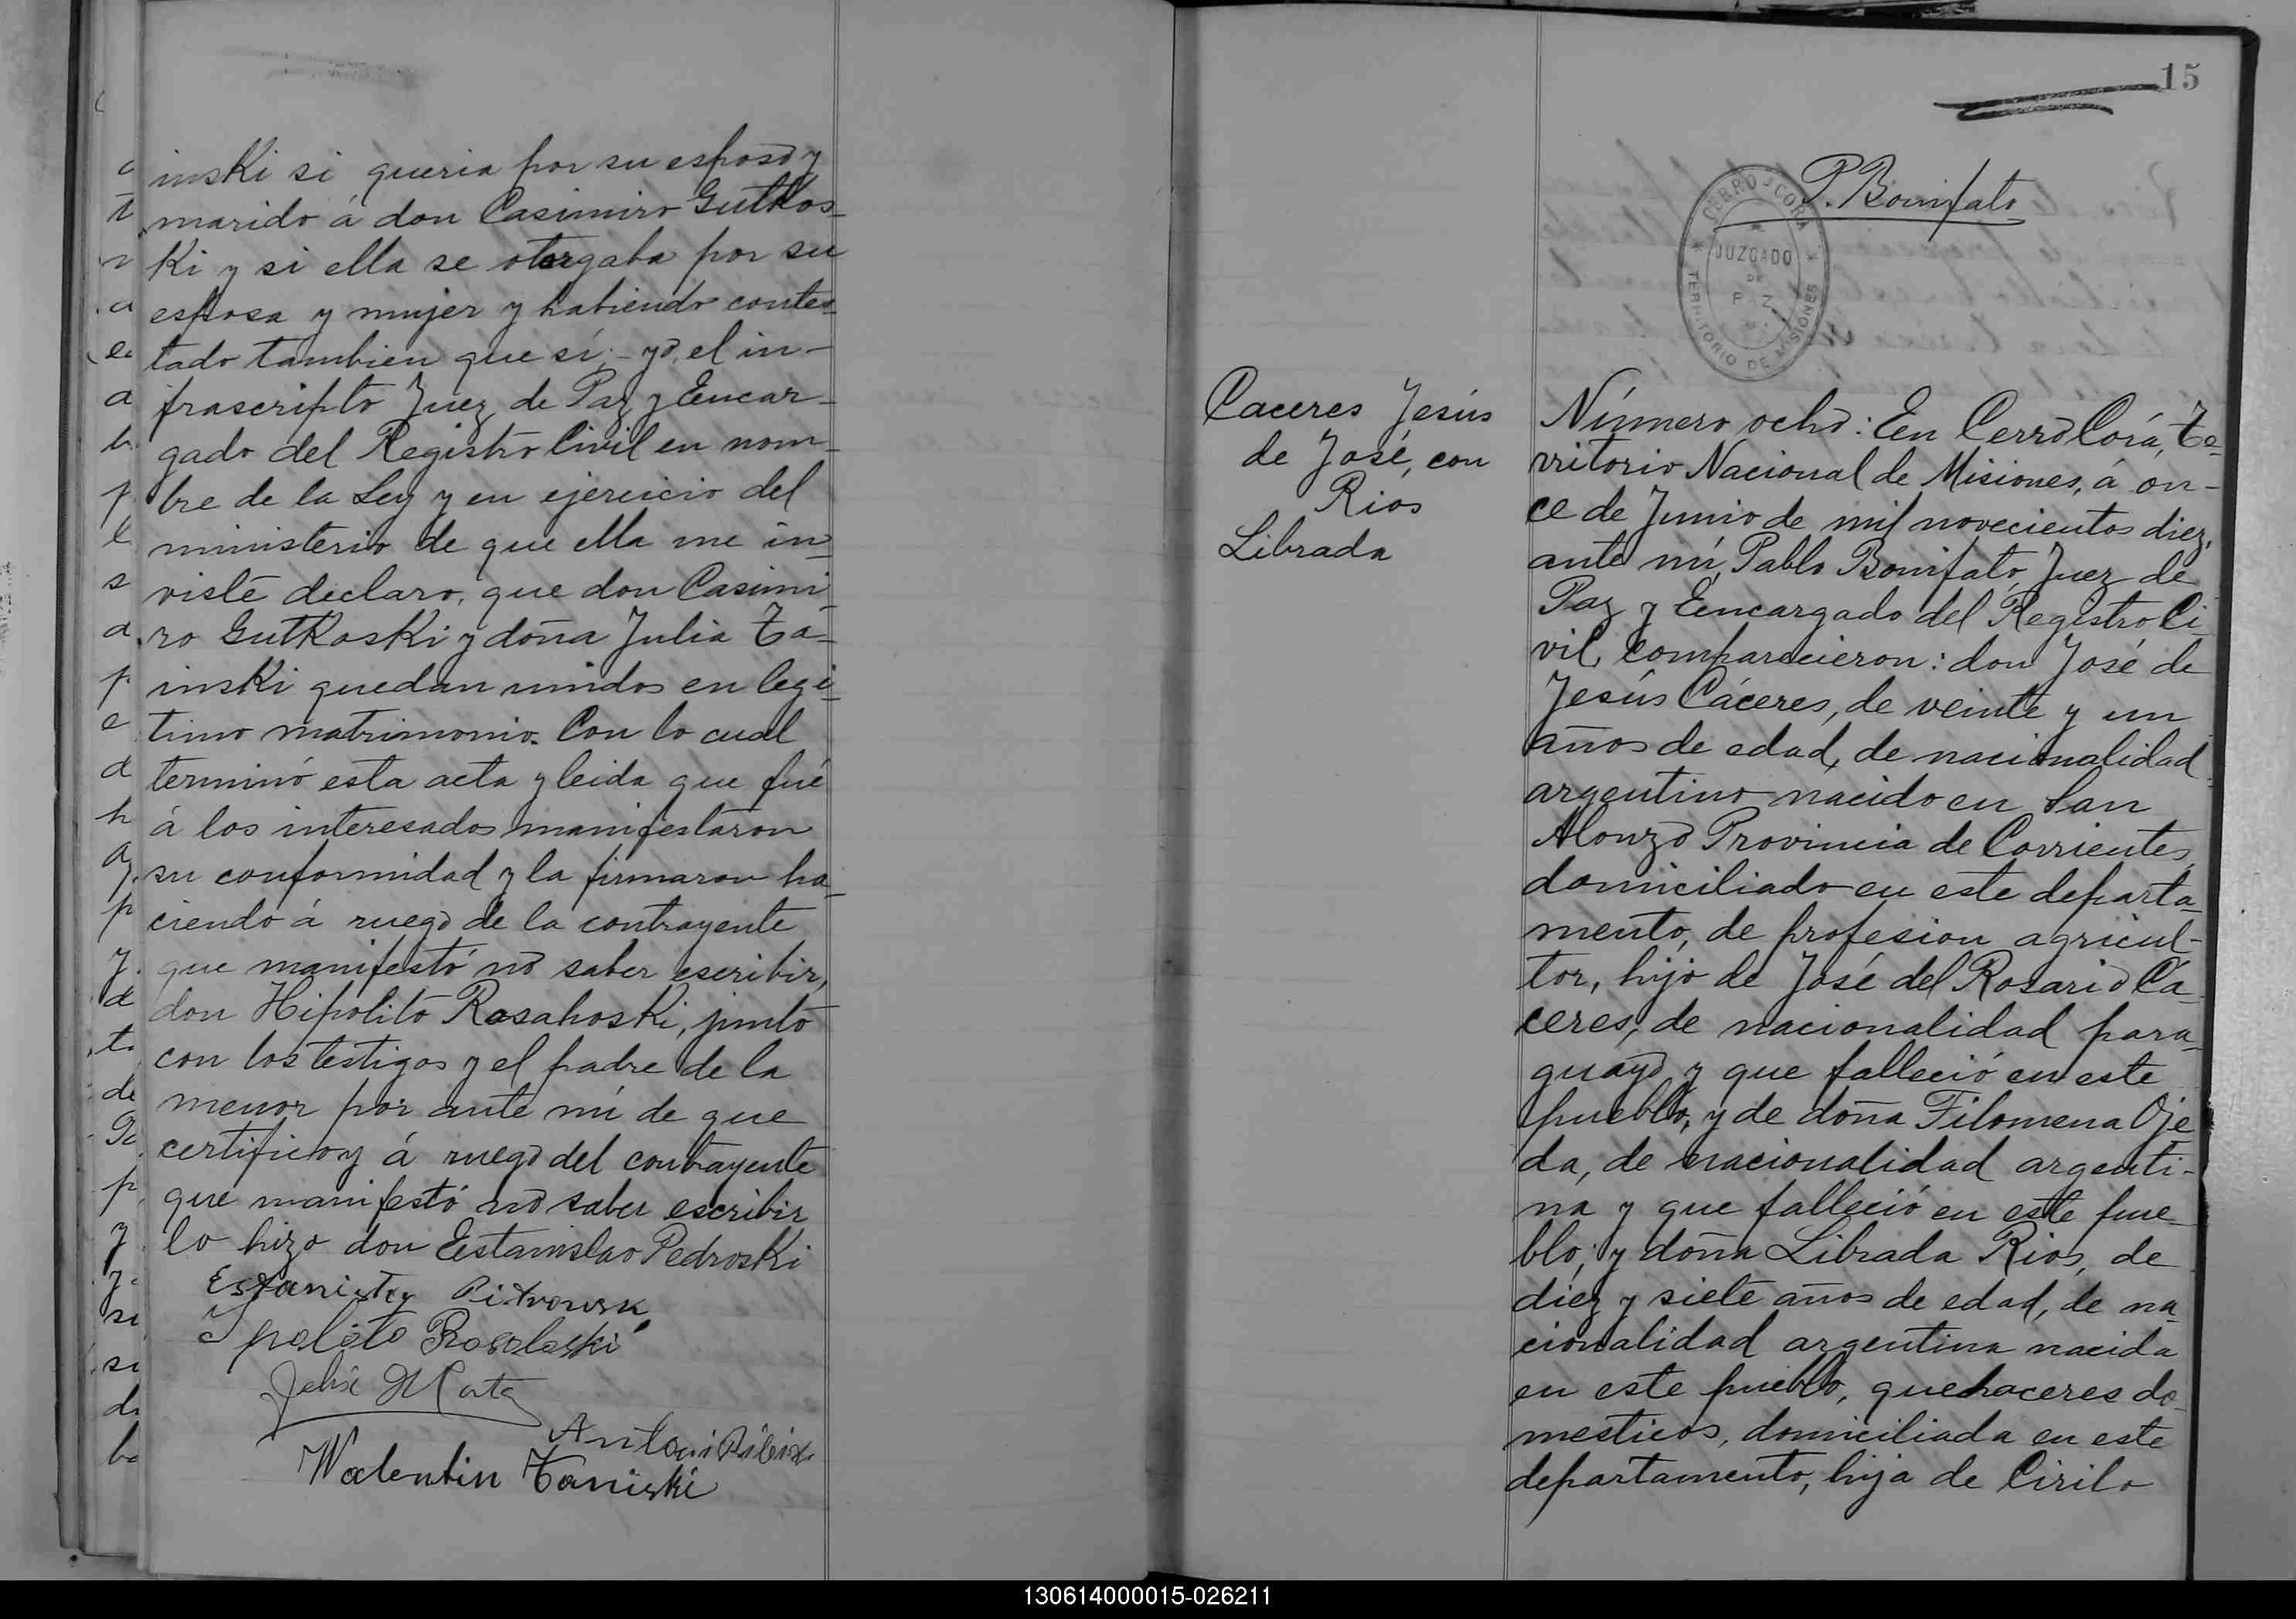 inski si queria por su esposo y
marido á don Casimiro Gutkos-
ki y si ella se otorgaba por su
esposa y mujer y habiendo contes-
tado tambien que sí; - yo, el in-
frascripto Juez de Paz y Encar-
gado del Registro Civil en nom-
bre de la Ley y en ejercicio del
ministerio de que ella me in-
viste declaro, que don Casimi-
ro Gutkoski y doña Julia Ta-
inski quedan unidos en legi-
timo matrimonio. Con lo cual
terminó esta acta y leida que fué
á los interesados manifestaron
su conformidad y la firmaron ha-
ciendo á ruego de la contrayente
que manifestó no saber escribir,
don Hipolito Rosahoski, junto
con los testigos y el padre de la
menor por ante mi de que
certifico y á ruego del contrayente
que manifestó no saber escribir
lo hizo don Estanislao Pedroski
Valentin Taniski
15
P. Bonifato
CERRO-CORA
JUZGADO
DE
P Z
TERRITORIO DE MISIONES
Caceres Jesús
de José, con
Rios
Librada
Número ocho: En Cerro Corá, Te-
rritorio Nacional de Misiones, á on-
ce de Junio de mil novecientos diez,
ante mí, Pablo Bonifato, Juez de
Paz y Encargado del Registro Ci-
vil, comparecieron: don José de
Jesús Cáceres, de veinte y un
años de edad, de nacionalidad
argentino nacido en San
Alonzo Provincia de Corrientes,
domiciliado en este departa-
mento, de profesion agricul-
tor, hijo de José del Rosario Ca-
ceres, de nacionalidad para-
guayo y que falleció en este
pueblo, y de doña Filomena Oje-
da, de nacionalidad argenti-
na y que falleció en este pue-
blo; y doña Librada Rios, de
diez y siete años de edad, de na-
cionalidad argentina nacida
en este pueblo, quehaceres do-
mesticos, domiciliada en este
departamento, hija de Cirilo
130614000015-026211